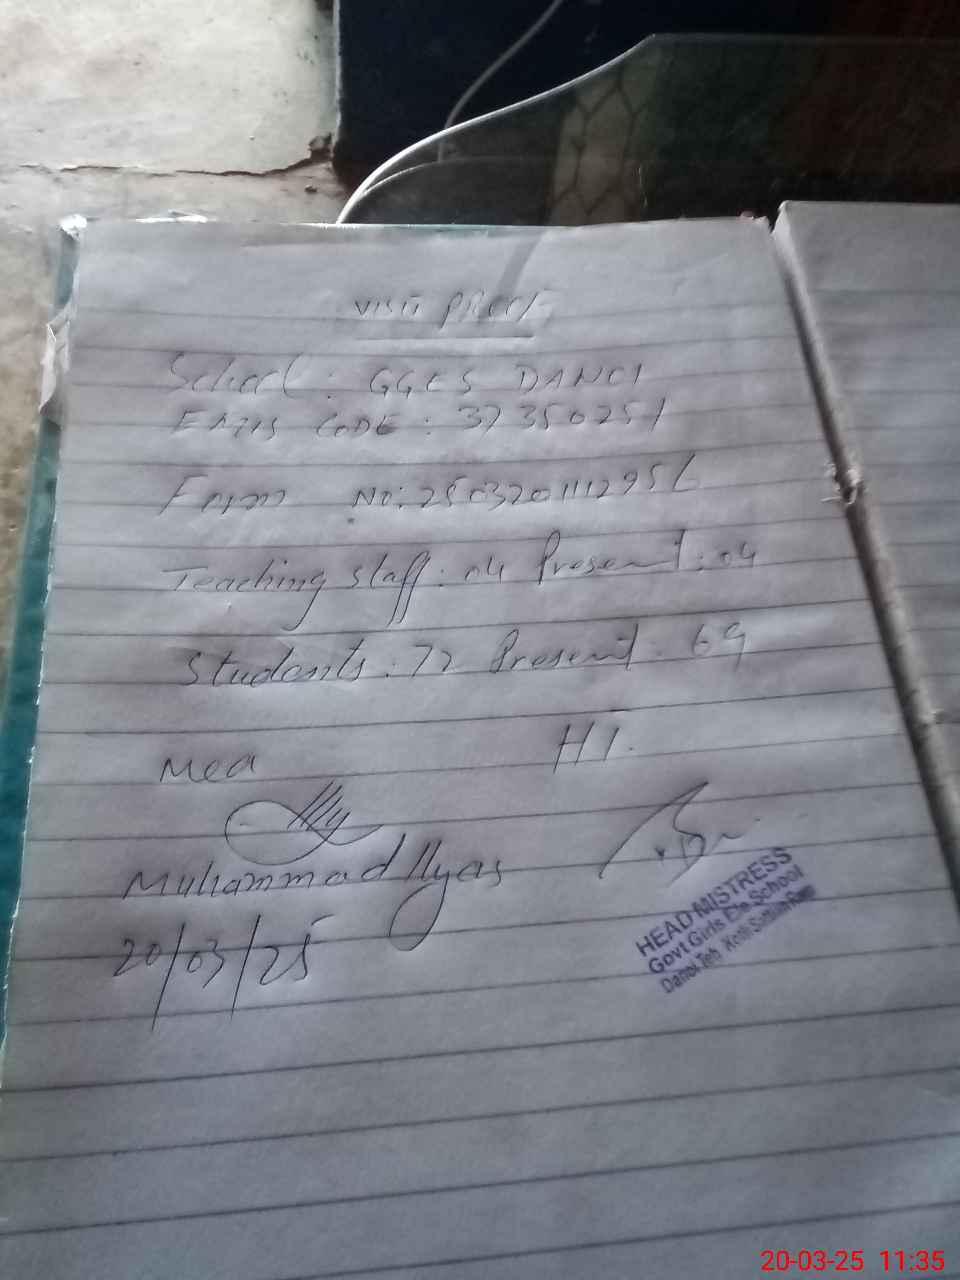 VISIT PROOF
School: GGES DANOI
EMIS CODE: 37350251
Form No: 2503201112956
Teaching staff: 04 Present: 04
Students: 72 Present: 69
Mea
HT.
Muhammad Ilyas
20/03/25
HEAD MISTRESS
Govt Girls Ele School
Danoi Teh Kotli Sattian Rwp
20-03-25 11:35